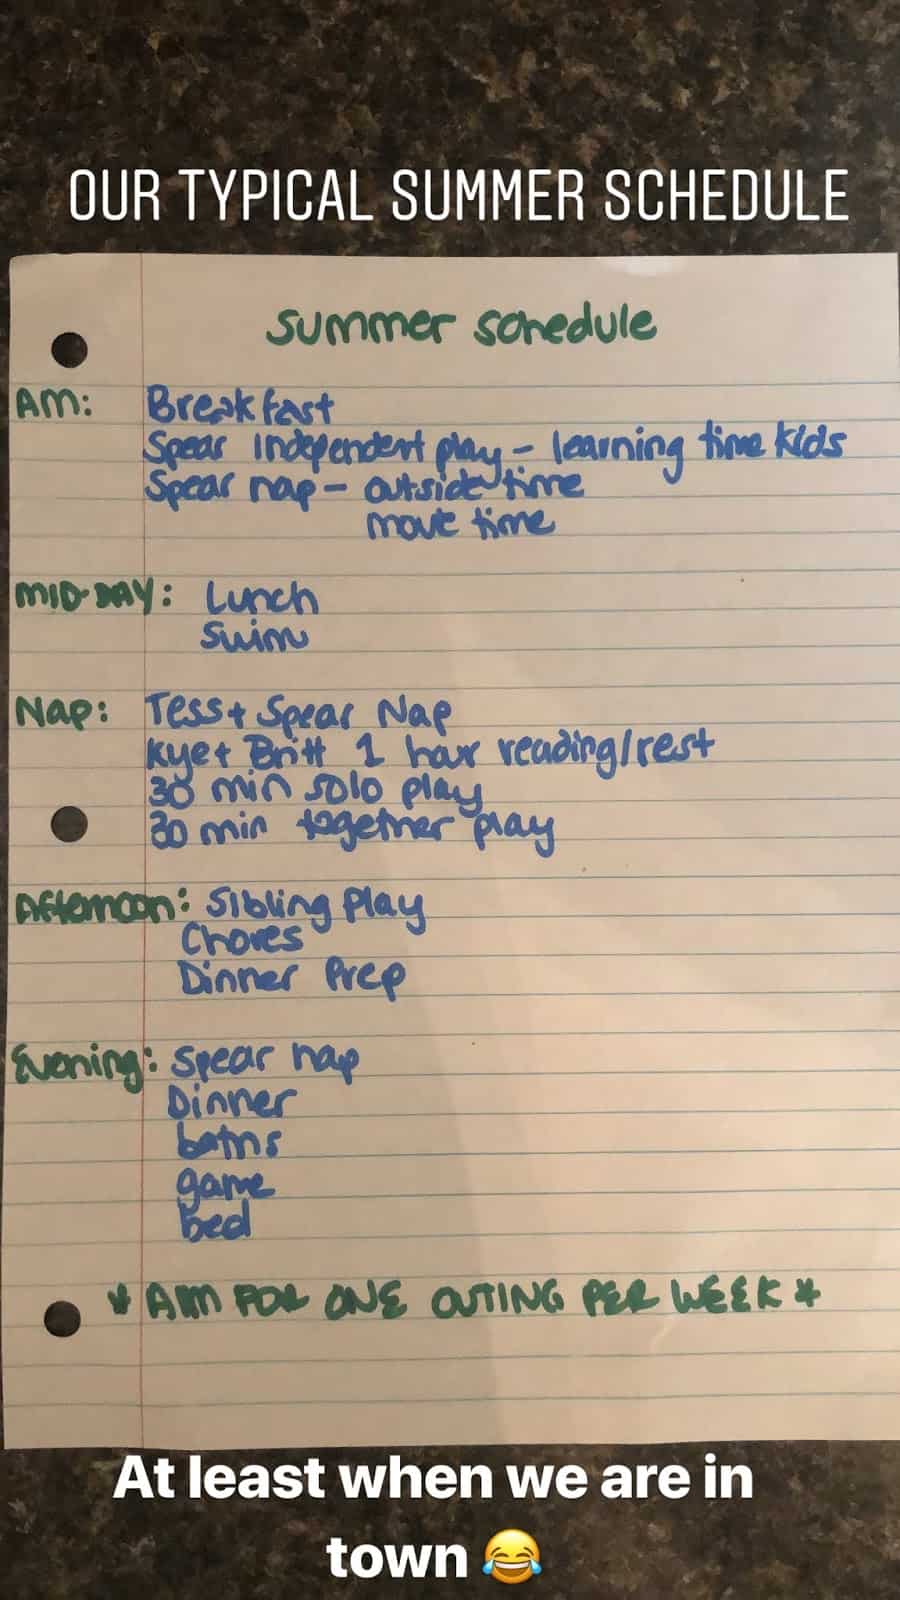 OUR TYPICAL SUMMER SCHEDULE
summer schedule
Am: Breakfast
Spear Independent play - learning time kids
Spear nap - outside time
move time
MID-DAY: Lunch
Swim
Nap: Tess + Spear Nap
Kye + Britt 1 hour reading/rest
30 min solo play
30 min together play
Afternoon: Sibling Play
Chores
Dinner Prep
Evening: Spear nap
Dinner
baths
game
bed
* AIM FOR ONE OUTING PER WEEK *
At least when we are in
town 😂